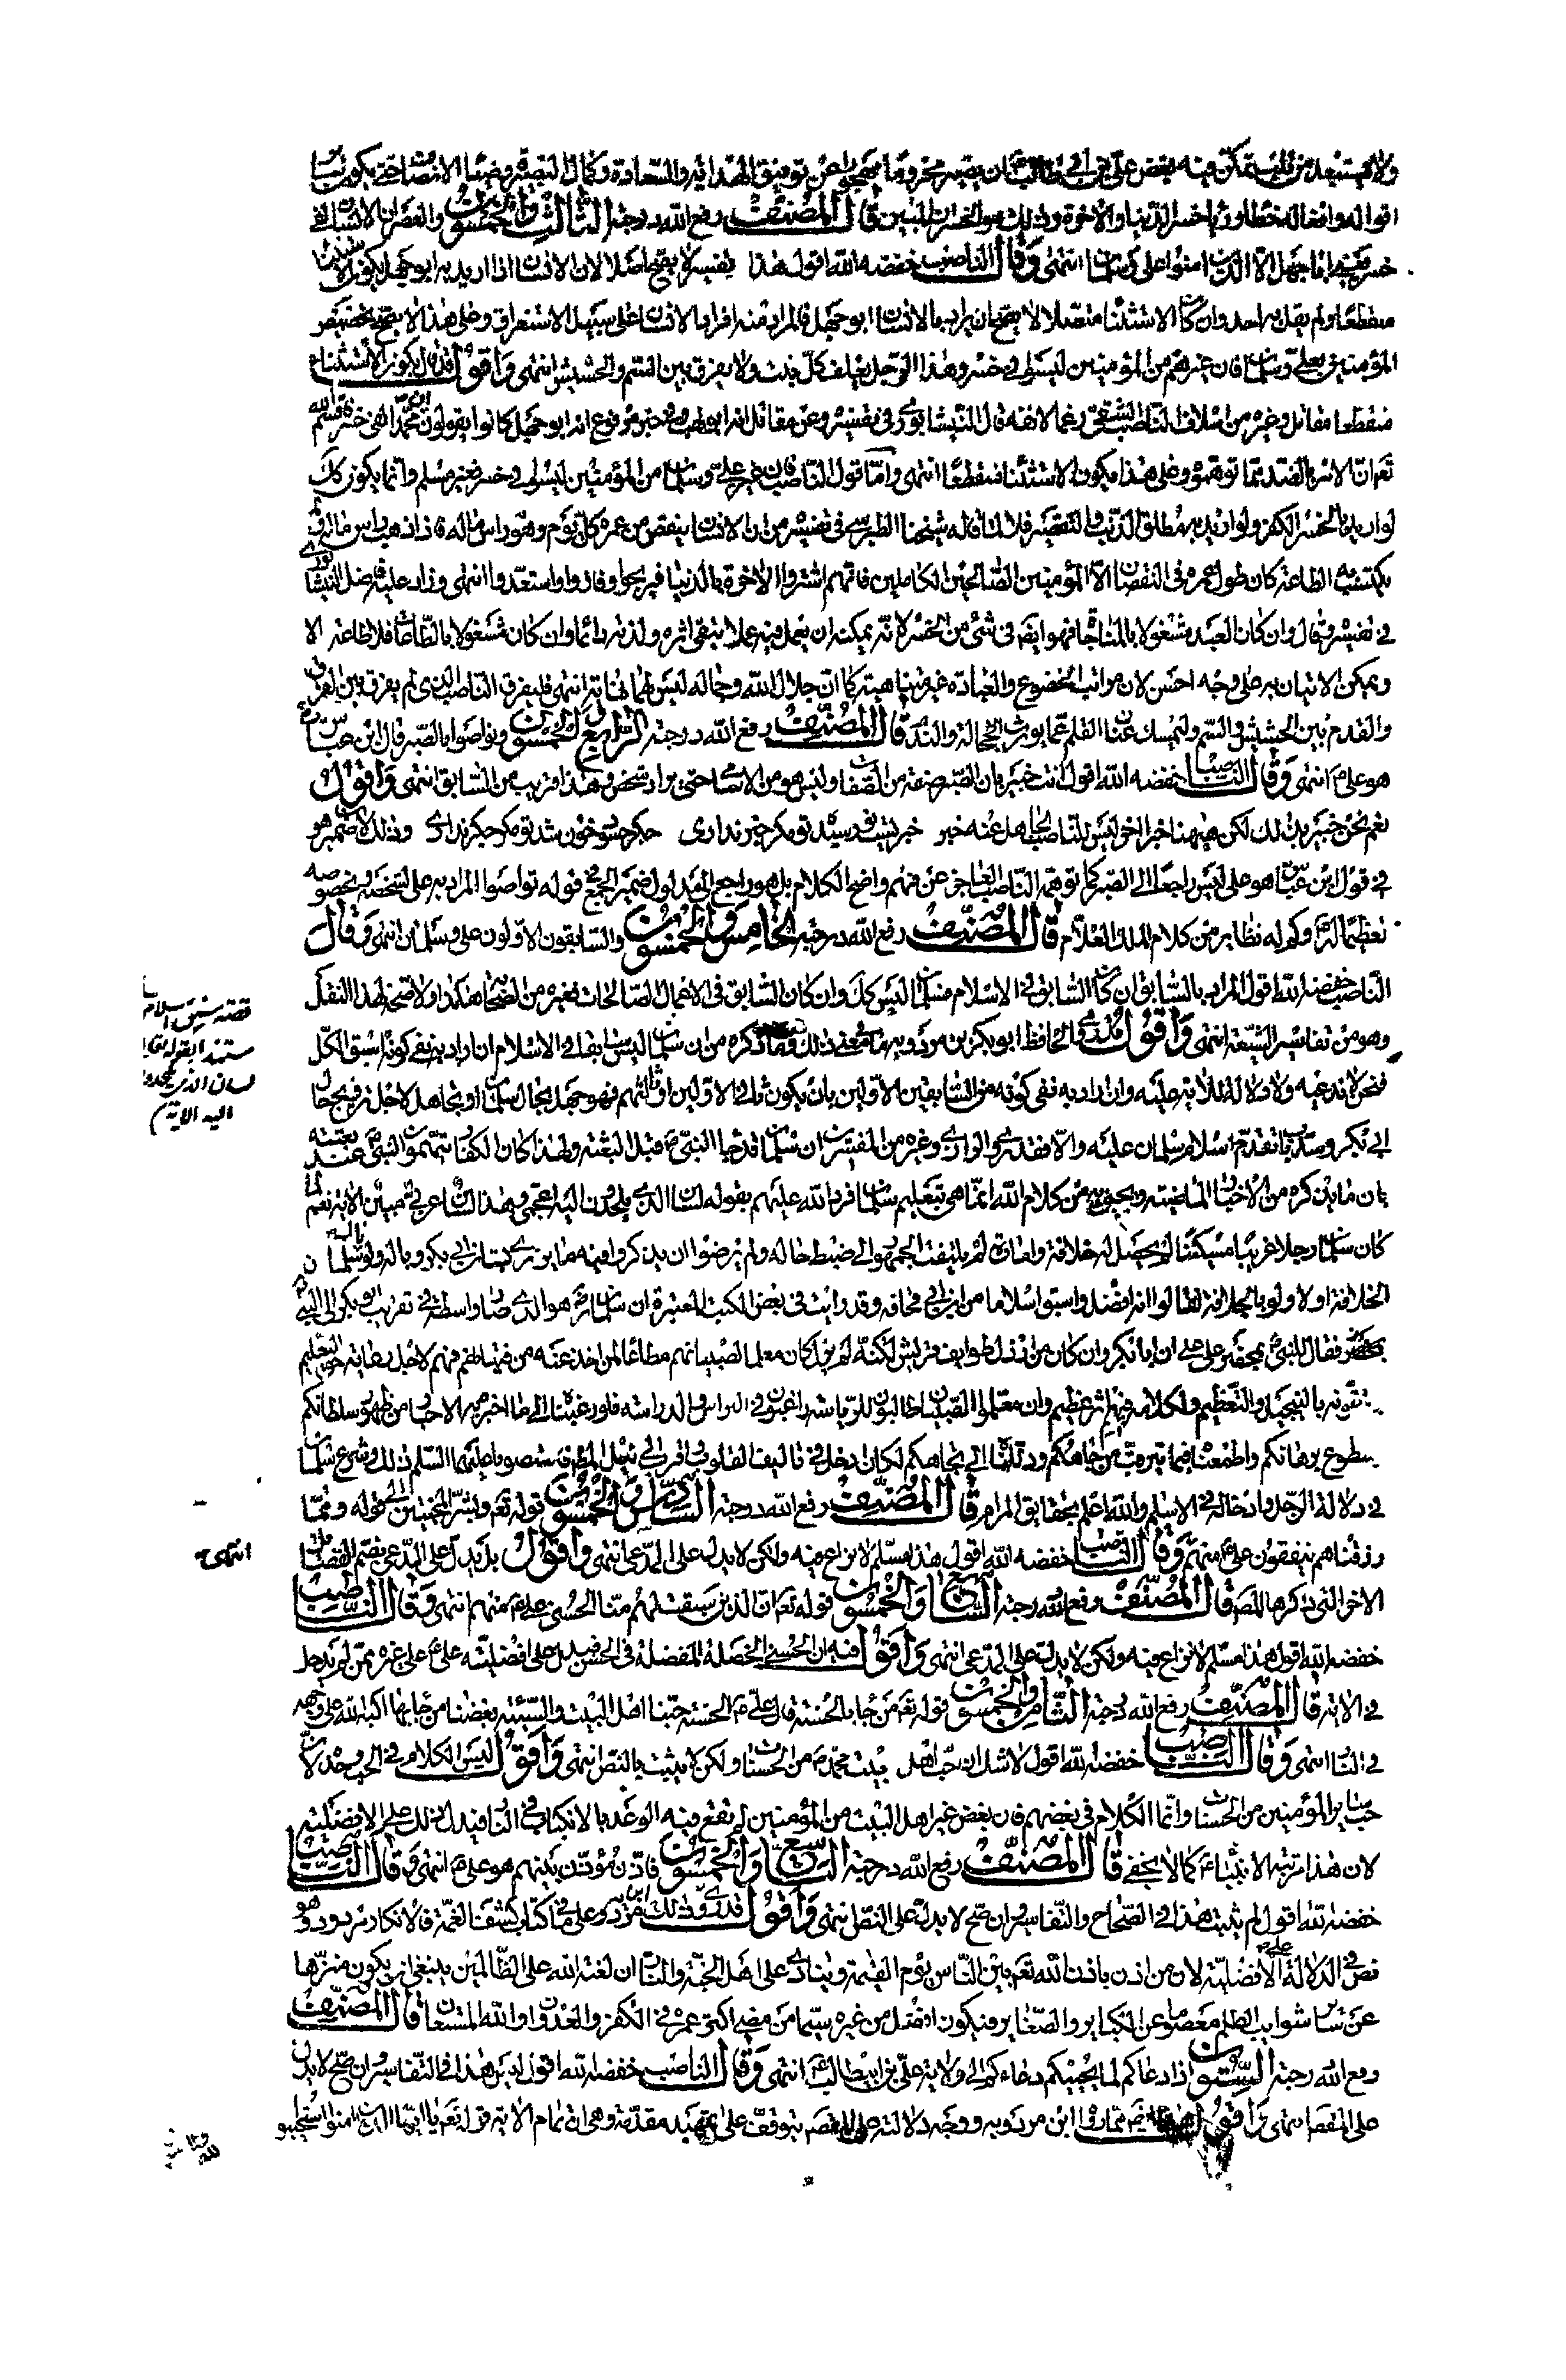 ولا يستبعد من قلب تمكن فيه بغض علي بن أبي طالب ان يصير محروما عن توفيق الهداية والسعادة
اقواله وافعاله خطاء وزيا خسر الدنيا والاخرة وذلك هو الخسران المبين قال المصنف رفع الله درجته الثالث والخمسون والعصر ان الانسان لفي
خسر يعني ابا جهل الا الذين امنوا علي وسلمان انتهى وقال الناصب خفضه الله اقول هذا تفسير لا يصح اصلا لان الانسان اذا اريد به ابو جهل يكون الاستثناء
منقطعا ولم يقل به احد وان كان الاستثناء متصلا لا يصح ان يراد بالانسان ابو جهل فالمراد منه افراد الانسان على سبيل الاستغراق وعلى هذا لا يصح تخصيص
المؤمنين بعلي وسلمان فان غيرهم من المؤمنين ليسوا في خسر وهذا الرجل يعلف كل نبت ولا يفرق بين السم والحشيش انتهى واقول قد قال بكون الاستثناء
منقطعا مقاتل وغيره من اسلاف الناصب الشقي رغما لانفه قال النيشابوري في تفسيره وعن مقاتل انه ابو لهب وفي خبر مرفوع انه ابو جهل كانوا يقولون ان محمدا لفي خسر فاقسم الله
تعالى ان الامر بالضد مما توهموه وعلى هذا يكون الاستثناء منقطعا انتهى واما قول الناصب فان غير علي وسلمان من المؤمنين ليسوا في خسر فغير مسلم وانما يكون كك
لو اريد بالخسر الكفر ولو اريد به مطلق الذنب والتقصير فلا لما قاله شيخنا الطبرسي في تفسيره من ان الانسان ينقص من عمره كل يوم وهو راس ماله فاذا ذهب راس ماله ولم
يكتسب به الطاعة كان طول عمره في النقصان الا المؤمنين الصالحين الكاملين فانهم اشتروا الاخرة بالدنيا فربحوا وفازوا واستعدوا انتهى وزاد عليه فاضل النيشابوري
في تفسيره وقال وان كان العبد مشغولا بالمباحات فهو ايضا في شئ من الخسر لانه يمكنه ان يعمل فيه عملا يبقى اثره ولذته دائما وان كان مشغولا بالطاعات فلا طاعة الا
ويمكن الاتيان به على وجه احسن لان مراتب الخضوع والعبادة غير متناهية كما ان جلال الله وجماله ليس لهما نهاية انتهى فليفرق الناصب الذي لم يفرق بين الفرق
والقدم بين الحشيش والسم وليمسك عنان القلم عما يورث الخجالة والندم قال المصنف رفع الله درجته الرابع والخمسون وتواصوا بالصبر قال ابن عباس
هو علي ع انتهى وقال الناصب خفضه الله اقول انت خبير بان الصبر صفة من الصفات وليس هو من الاسماء حتى يراد شخص وهذا قريب من السابق انتهى واقول
نعم نحن خبير بذلك لكن ههنا خبر اخر ليس للناصب الجاهل عنه خبر
في قول ابن عباس هو علي ليس راجعا الى الصبر كما توهمه الناصب العاجز عن فهم واضح الكلام بل هو راجع الى مدلول ضمير الجمع في قوله تواصوا المراد به علي لشخصه وخصوصه
تعظيما له وكم له نظاير من كلام الملك العلام قال المصنف رفع الله درجته الخامس والخمسون والسابقون الاولون علي وسلمان انتهى وقال
الناصب خفضه الله اقول المراد بالسابق ان كان السابق في الاسلام فسلمان ليس كك وان كان السابق في الاعمال الصالحات فغيره من الصحابة هكذا ولا صحة لهذا النقل
وهو من تفاسير الشيعة انتهى واقول قد روى الحافظ ابو بكر بن مردويه ما في معنى ذلك وما ذكره من ان سلمان ليس سابقا في الاسلام ان اراد به نفي كونه اسبق الكل
فنحن لا ندعيه ولا دلالة للاية عليه وان اراد به نفي كونه من السابقين الاولين بان يكون ثاني الاولين او ثالثهم فهو جهل بحال سلمان او تجاهل لاجل ترويج حال
ابي بكر وسد باب تقدم اسلام سلمان عليه والا فقد روى الواحدي وغيره من المفسرين ان سلمان قد جاء النبي ص قبل البعثة ولهذا كان الكفار يتهمون النبي عند بعثته
بان ما يذكره من الاخبار الماضية من كلام الله انما هي بتعليم سلمان فرد الله عليهم بقوله لسان الذي يلحدون اليه اعجمي وهذا لسان عربي مبين الاية نعم لما
كان سلمان رجلا غريبا مسكينا لم يحصل له خلافة وامارة لم يلتفت الجمهور الى ضبط حاله ولم يرضوا ان يذكروا فيه
الخلافة اولا ولو بالجلافة لقالوا انه افضل واسبق اسلاما من ابن ابي قحافة وقد رايت في بعض الكتب المعتبرة ان سلمان رض هو الذي صار واسطة في تقريب ابي بكر الى النبي ص
فقال للنبي ص بمحضر علي ع ان ابا بكر وان كان من ارذل طوايف قريش لكنه لم يزل كان معلما لصبيانهم مطاعا لمن اخذ عنه من فتيانهم فهم لاجل رعاية حق التعليم
بالتبجيل والتعظيم ولكلامه فيهم اثر عظيم وان معلمو الصبيان طالبون للرياسة راغبون في
سطوع برهانكم واطمعناه فيما يترتب من جاهكم ودللناه الى تجاهكم لكان دخل في تاليف القلوب
في دلالة الرجل وادخاله في الاسلام والله اعلم بحقايق المرام قال المصنف رفع الله درجته السادس والخمسون قوله تعالى وبشر المخبتين الى قوله ومما
رزقناهم ينفقون علي ع منهم وقال الناصب خفضه الله اقول هذا مسلم لا نزاع فيه ولكن لا يدل على المدعى انتهى واقول بل يدل على المدعى بضم الفضايل
الاخر التي ذكرها المصنف قال المصنف رفع الله درجته السابع والخمسون قوله تعالى ان الذين سبقت لهم منا الحسنى علي ع منهم انتهى وقال الناصب
خفضه الله اقول هذا مسلم لا نزاع فيه ولكن لا يدل على المدعى انتهى واقول فيه ان الحسنى الخصلة المفضلة في الحسن فيدل على افضليته علي ع على غيره ممن لم يدخل
في الاية قال المصنف رفع الله درجته الثامن والخمسون قوله تعالى من جاء بالحسنة قال علي ع الحسنة حبنا اهل البيت والسيئة بغضنا من جاء بها اكبه الله على وجهه
في النار انتهى وقال الناصب خفضه الله اقول لا شك ان حب اهل بيت محمد ص من الحسنات ولكن لا يثبت به النص انتهى واقول ليس الكلام في الحب وحده لان
حب ساير المؤمنين من الحسنات وانما الكلام في بغضهم فان بغض غير اهل البيت من المؤمنين لم تقع فيه الوعد بالانكباب في النار فيدل ذلك على الافضلية
لان هذا مرتبة الانبياء ع كما لا يخفى قال المصنف رفع الله درجته التاسع والخمسون فاذن مؤذن بينهم هو علي ع انتهى وقال الناصب
خفضه الله اقول لم يثبت هذا في الصحاح والتفاسير وان صح لا يدل على النص انتهى واقول قد روى ذلك ابن مردويه على ما في كتاب كشف الغمة فالانكار مردود وهو
نص في الدلالة على الافضلية لان من اذن باذن الله تعالى بين الناس يوم القيمة وينادي على اهل الجنة والنار ان لعنة الله على الظالمين ينبغي ان يكون منزها
عن ساير شوايب الظلم معصوما عن الكباير والصغاير فيكون افضل من غيره سيما من مضى اكثر عمره في الكفر والعدوان والله المستعان قال المصنف
رفع الله درجته الستون اذا دعاكم لما يحييكم دعاءكم الى ولاية علي بن ابي طالب ع انتهى وقال الناصب خفضه الله اقول ليس هذا في التفاسير وان صح لا يدل
على المقصد انتهى واقول ابن مردويه ووجه دلالته على المقصد يتوقف على تمهيد مقدمة وهي ان تمام الاية قوله تعالى يا ايها الذين امنوا استجيبوا
قصة سبق اسلام
مستند القوله تعالى
لسان الذي يلحدون
اليه الاية
انتهى